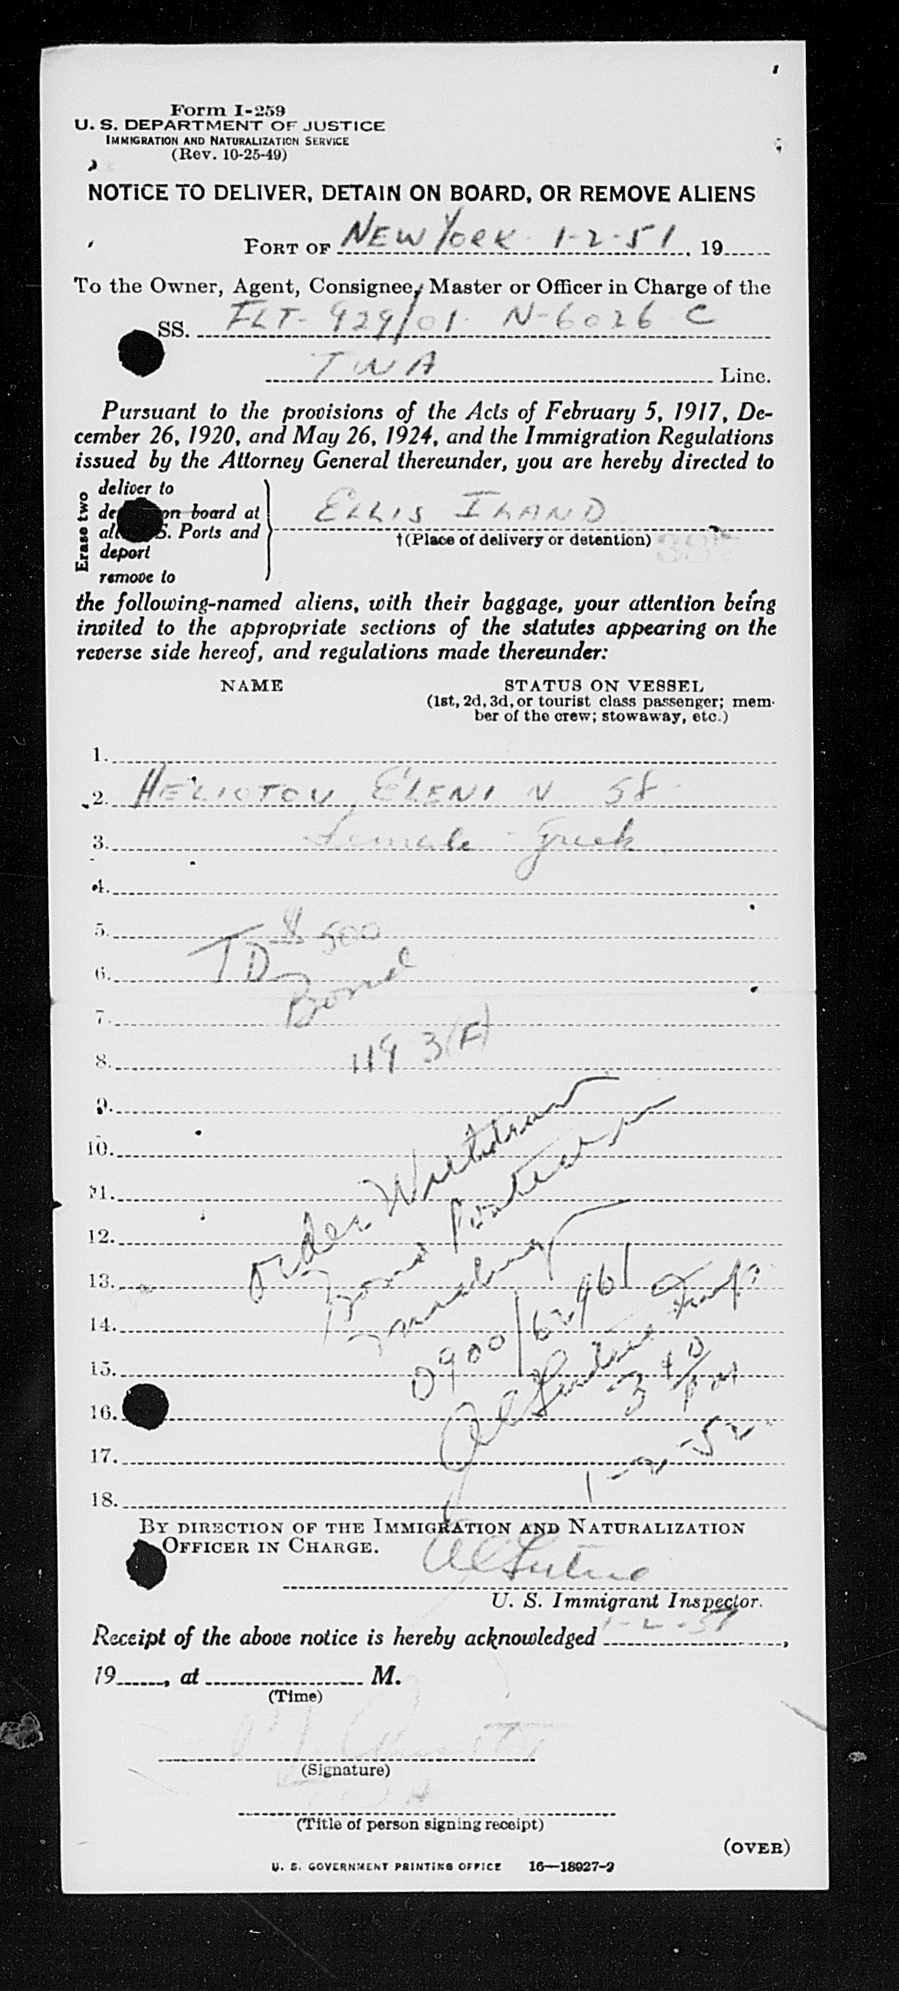 Form I-259
U. S. DEPARTMENT OF JUSTICE
IMMIGRATION AND NATURALIZATION SERVICE
(Rev. 10-25-49)
NOTICE TO DELIVER, DETAIN ON BOARD, OR REMOVE ALIENS
PORT OF NEW YORK 1-2-51, 19
To the Owner, Agent, Consignee, Master or Officer in Charge of the
SS. FLT- 929/01- N-6026 C
TWA Line.
Pursuant to the provisions of the Acts of February 5, 1917, De-
cember 26, 1920, and May 26, 1924, and the Immigration Regulations
issued by the Attorney General thereunder, you are hereby directed to
Erase two
deliver to
on board at
S. Ports and
deport
remove to
ELLIS ILAND
†(Place of delivery or detention)
the following-named aliens, with their baggage, your attention being
invited to the appropriate sections of the statutes appearing on the
reverse side hereof, and regulations made thereunder:
NAME STATUS ON VESSEL
(1st, 2d, 3d, or tourist class passenger; mem-
ber of the crew; stowaway, etc.)
1.
2. HELIOTOU, ELENI N 58
3. Female - Greek
4.
5. $500
6. TD
7. Bond
8. 119 3(F)
9.
10.
11.
12.
13.
14.
15.
16.
17.
18.
Order Withdrawn
Bond
0900/62461
3 40 PM
1-2-52
BY DIRECTION OF THE IMMIGRATION AND NATURALIZATION
OFFICER IN CHARGE.
U. S. Immigrant Inspector.
Receipt of the above notice is hereby acknowledged 1-2-51,
19, at M.
(Time)
(Signature)
(Title of person signing receipt)
(OVER)
U. S. GOVERNMENT PRINTING OFFICE 16—18927-2